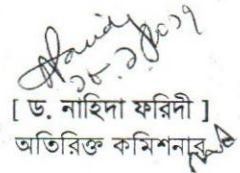 ১৮.১.২০১৭
[ ড. নাহিদা ফরিদী ]
অতিরিক্ত কমিশনার